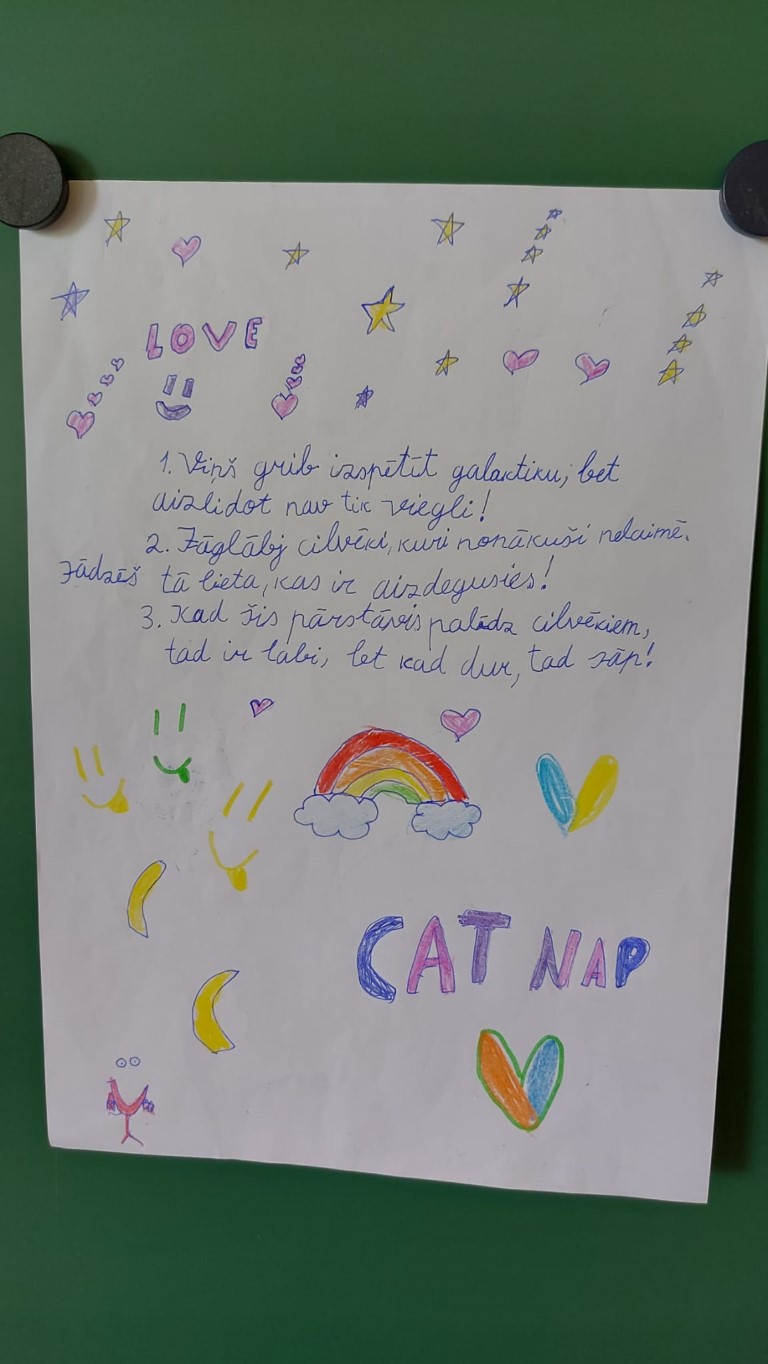 LOVE
1. Viņš grib izspētīt galaktiku, bet
aizlidot nav tik viegli!
2. Jāglābj cilvēki, kuri nonākuši nelaimē.
Jādzēš tā lieta, kas ir aizdegusies!
3. Kad šis pārstāvis palīdz cilvēkiem,
tad ir labi, bet kad dur, tad sāp!
CAT NAP